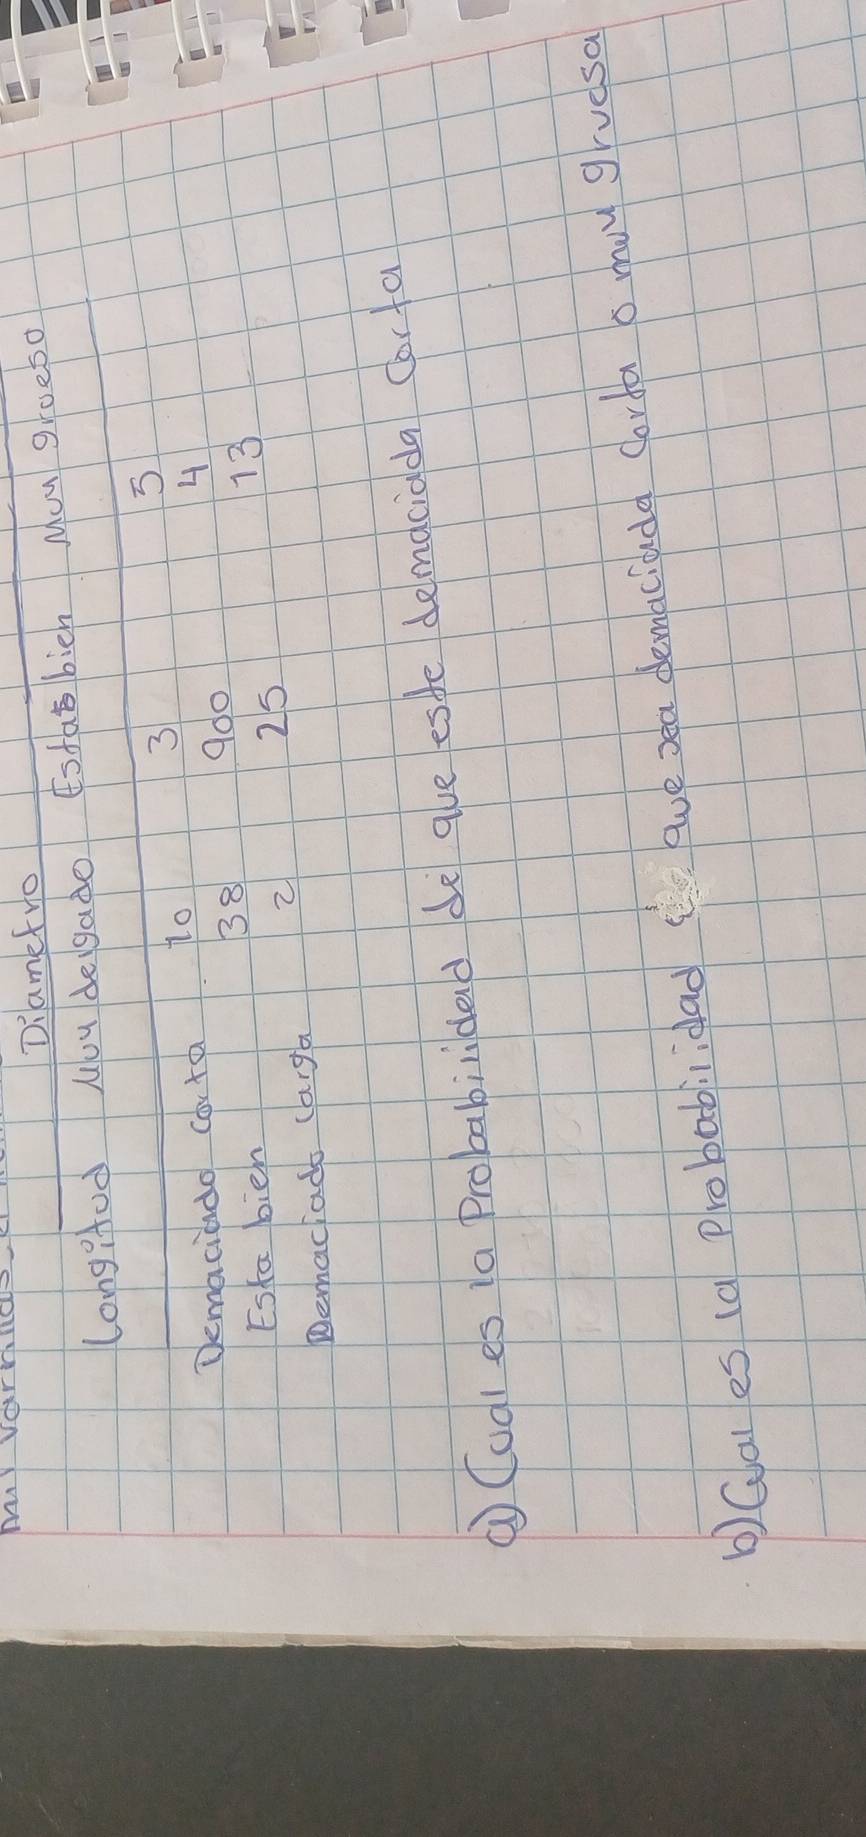 mil varillas
Diametro
Longitud Muy delgado Estas bien Muy grueso
Demaciado corta 10 3 5
Esta bien 38 900 4
Demaciado larga 2 25 13
a) Cual es la Probabilidad de que este demaciada Corta
b) Cual es la Probabilidad que sea demaciada Corta o muy gruesa